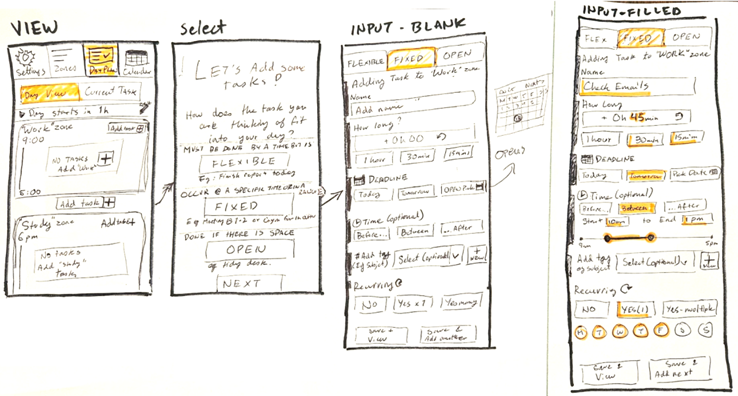 VIEW
Settings
Zones
Day Plan
Calendar
Day View
Current Task
Day starts in 1h
"Work" zone
9:00
NO TASKS
Add "Work"
5:00
Add task +
"Study" zone
6 pm
NO TASKS
Add "Study"
task
Select
LET'S Add some
tasks!
How does the task you
are thinking of fit
into your day?
MUST BE DONE BY A TIME BUT IS
FLEXIBLE
Eg: Finish paper today
OCCUR @ A SPECIFIC TIME
FIXED
DONE IF THERE IS SPACE
OPEN
desk.
NEXT
INPUT - BLANK
FLEXIBLE
FIXED
OPEN
Adding Task to "Work" zone
Name
Add name
How long?
+0h 00
1 hour
30 min
15 mins
DEADLINE
Today
Tomorrow
Time (optional)
Before...
Between
... After
# Add tag
Select (optional)
+
Recurring
NO
Yes x 1
Save +
View
Save &
Add another
OPEN?
INPUT-FILLED
FLEX
FIXED
OPEN
Adding Task to "WORK" zone
Name
Check Emails
How Long
+ 0h 45min
1 hour
30min
15min
DEADLINE
Today
Tomorrow
Pick Date
Time (optional)
Before..
Between
... After
Start 10am to End 1 pm
9am
5pm
Add tag
eg subject
Select (optional)
+
Recurring
NO
YES (1)
Yes-multiple
M T W T F S S
Save &
View
Save &
Add next